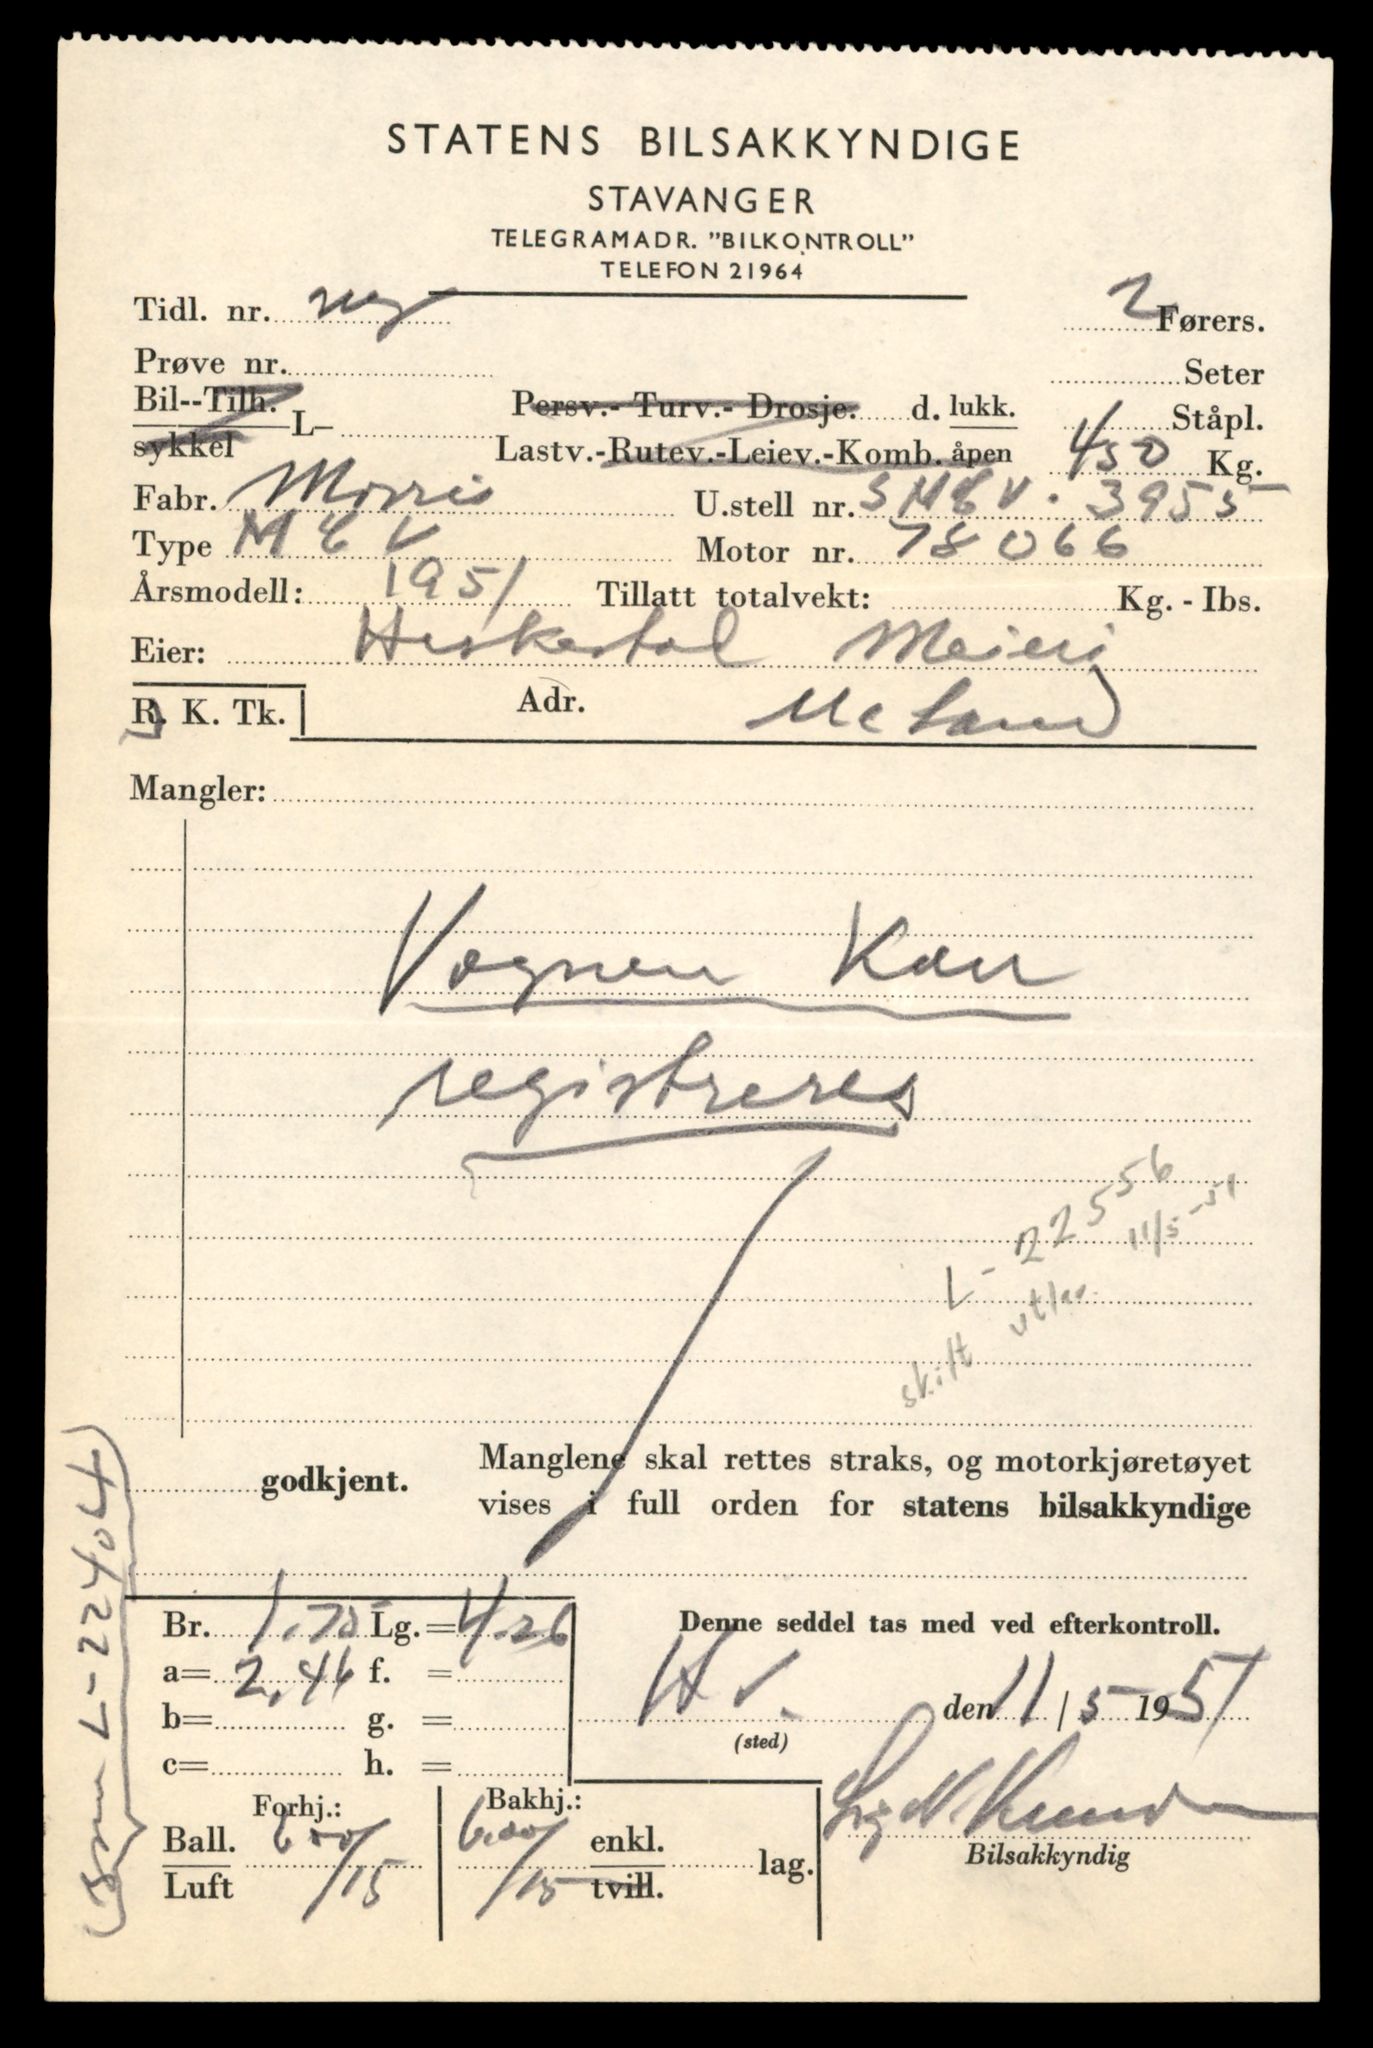 STATENS BILSAKKYNDIGE
STAVANGER
TELEGRAMADR. "BILKONTROLL"
TELEFON 21964
Tidl. nr. ny 2 Førers.
Prøve nr. Seter
Bil--Tilh. L– Persv.- Turv.- Drosje. d. lukk. Ståpl.
sykkel Lastv.-Rutev.-Leiev.-Komb. åpen 450 Kg.
Fabr. Morris U.stell nr. 3955
Type Motor nr. 78066
Årsmodell: 1951 Tillatt totalvekt: Kg. - Ibs.
Eier: Heskestad Meieri
R. K. Tk. Adr. Ueland
Mangler:
Vognen kan
registreres
L - 22556
skift utlev. 11/5 -51
godkjent. Manglene skal rettes straks, og motorkjøretøyet
vises i full orden for statens bilsakkyndige
L - 22404
Br. 1.70 Lg. = 4.26 Denne seddel tas med ved efterkontroll.
a= 2,46 f. =
b= g. = (sted) den 11 / 5 1951
c= h. =
Forhj.: Bakhj.:
Ball. 600/15 6.00/15 enkl. lag.
Luft tvill.
Bilsakkyndig